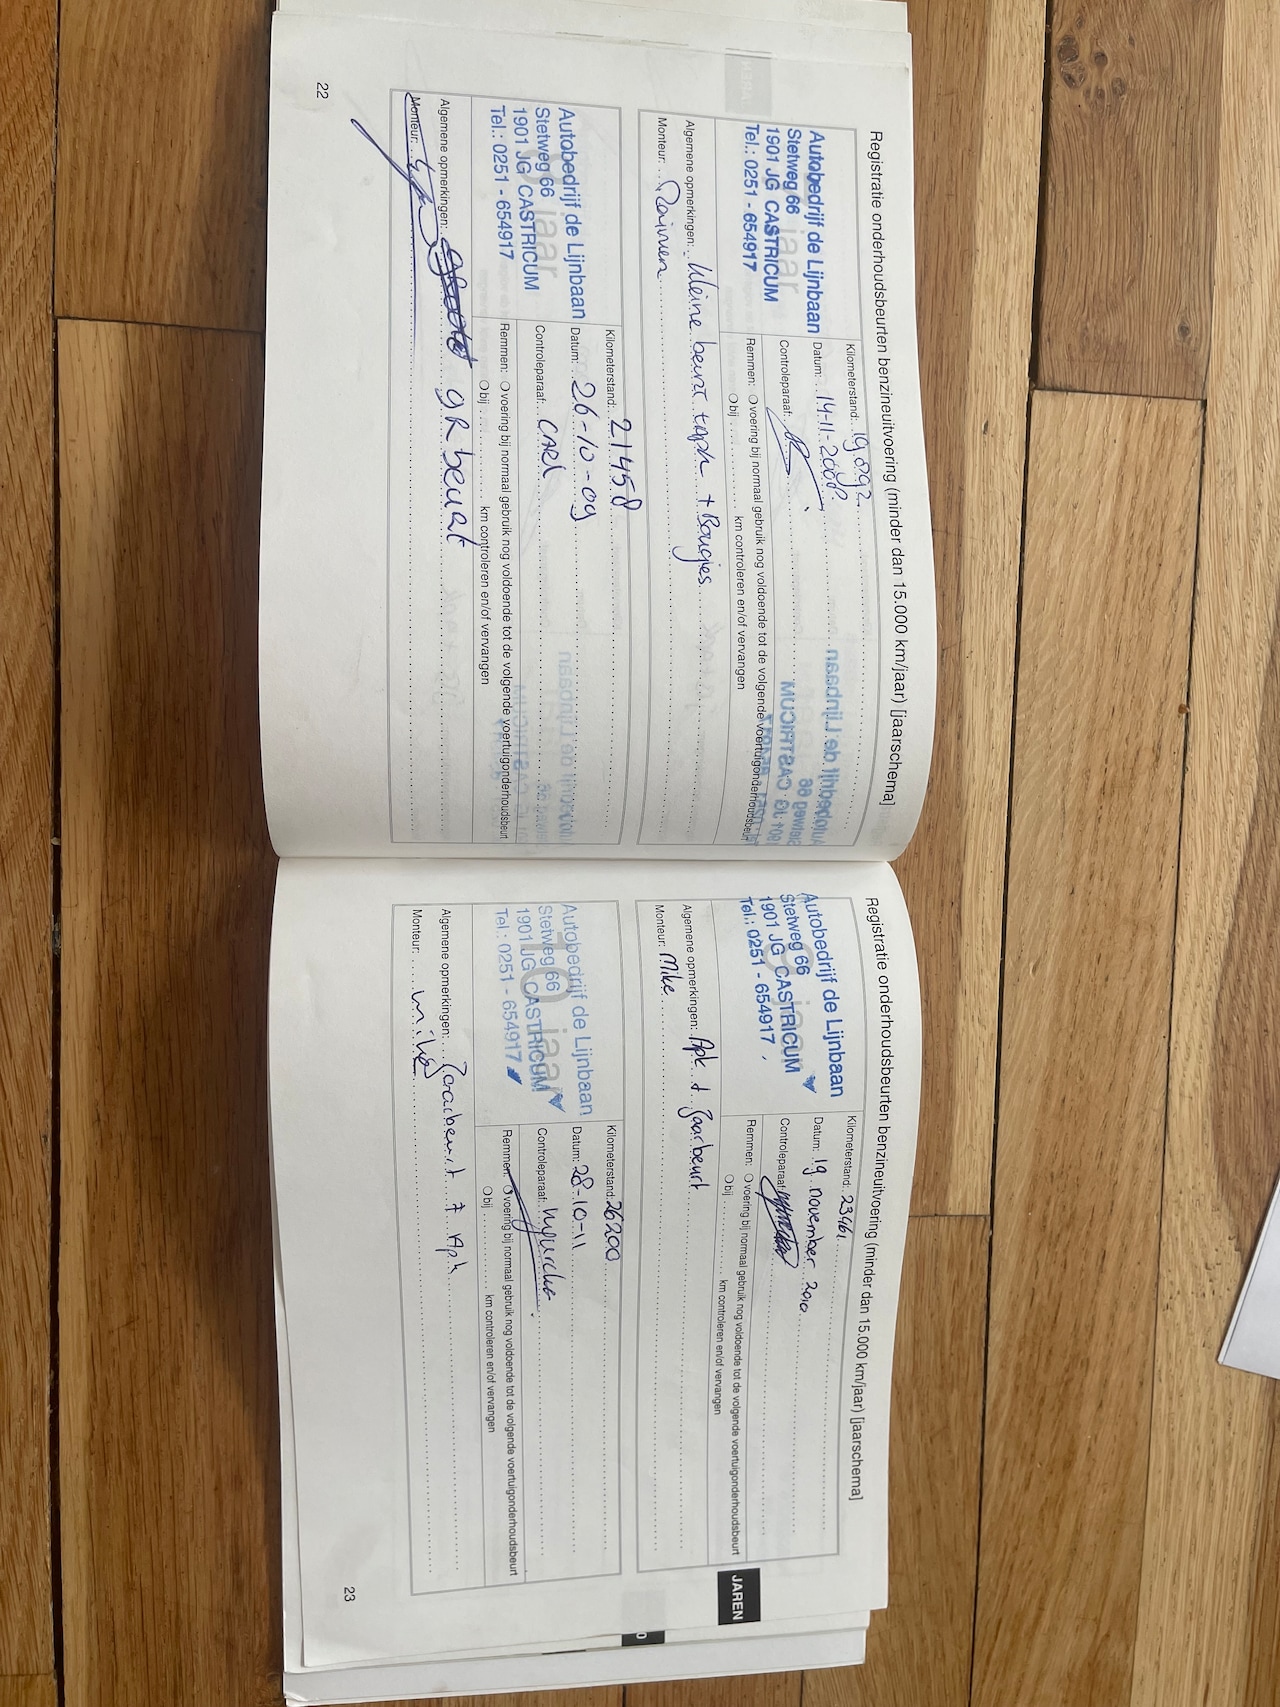 Registratie onderhoudsbeurten benzineuitvoering (minder dan 15.000 km/jaar) [jaarschema]
Autobedrijf de Lijnbaan
Stetweg 66
1901 JG CASTRICUM
Tel.: 0251 - 654917
jaar
Kilometerstand: 19.892
Datum: 14-11-2008
Controleparaaf:
Remmen: voering bij normaal gebruik nog voldoende tot de volgende voertuigonderhoudsbeurt
bij km controleren en/of vervangen
Algemene opmerkingen: kleine beurt + apk + Bougies
Monteur:
Autobedrijf de Lijnbaan
Stetweg 66
1901 JG CASTRICUM
Tel.: 0251 - 654917
jaar
Kilometerstand: 21458
Datum: 26-10-09
Controleparaaf: CARL
Remmen: voering bij normaal gebruik nog voldoende tot de volgende voertuigonderhoudsbeurt
bij km controleren en/of vervangen
Algemene opmerkingen: gR beurt
Monteur:
22
Registratie onderhoudsbeurten benzineuitvoering (minder dan 15.000 km/jaar) [jaarschema]
Autobedrijf de Lijnbaan
Stetweg 66
1901 JG CASTRICUM
Tel.: 0251 - 654917
9 jaar
Kilometerstand: 23461
Datum: 19 november 2010
Controleparaaf:
Remmen: voering bij normaal gebruik nog voldoende tot de volgende voertuigonderhoudsbeurt
bij km controleren en/of vervangen
Algemene opmerkingen: Apk + Jaarbeurt
Monteur: Mike
JAREN
Autobedrijf de Lijnbaan
Stetweg 66
1901 JG CASTRICUM
Tel.: 0251 - 654917
10 jaar
Kilometerstand: 26200
Datum: 28-10-11
Controleparaaf:
Remmen: voering bij normaal gebruik nog voldoende tot de volgende voertuigonderhoudsbeurt
bij km controleren en/of vervangen
Algemene opmerkingen: Jaarbeurt + Apk
Monteur: Mike
23